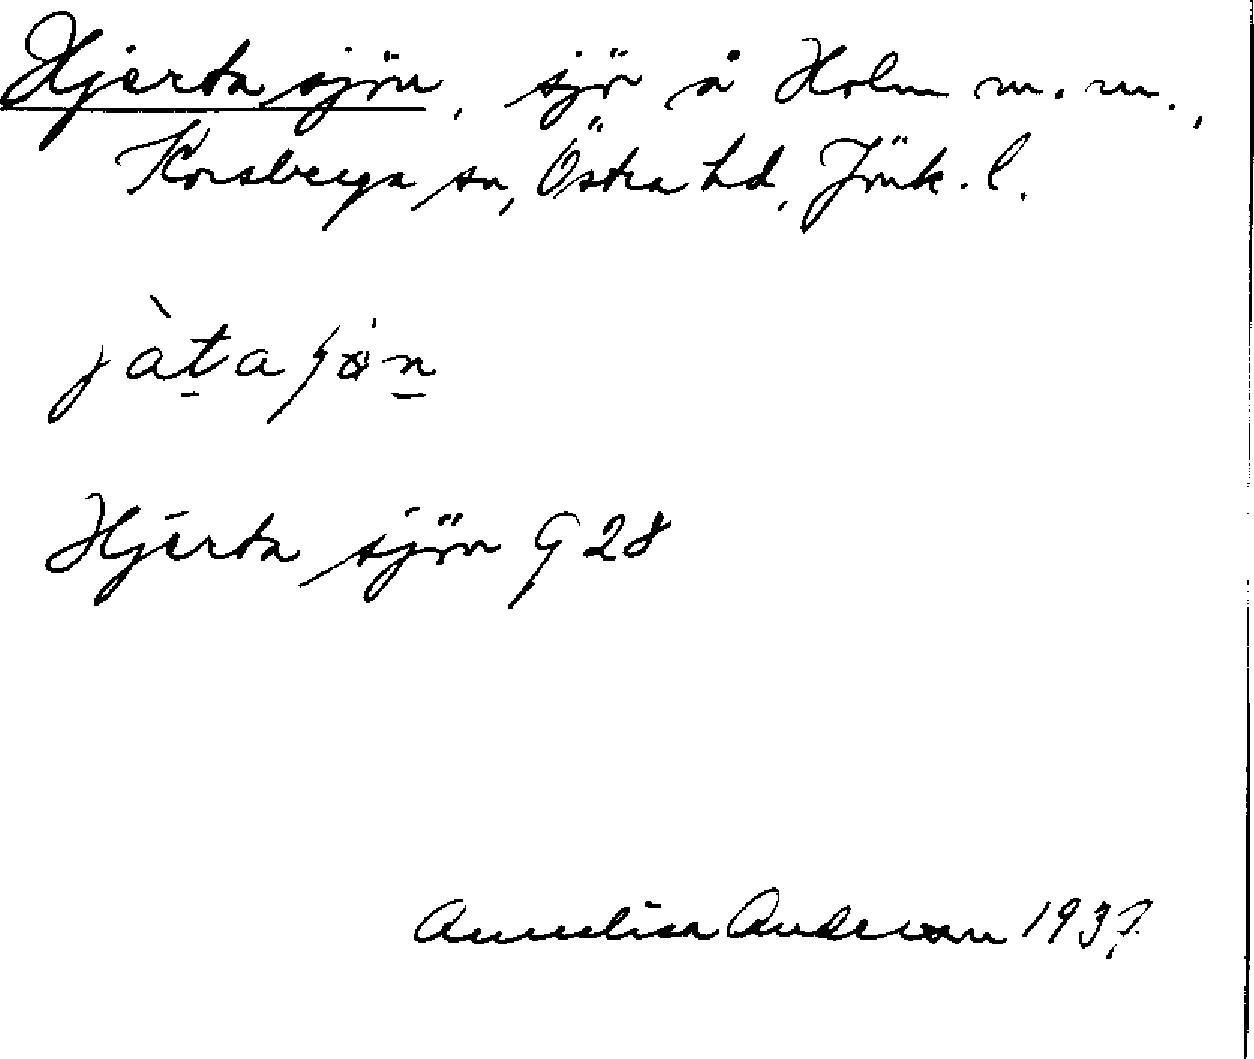 Hjerta sjön, sjö å Holm m.m.,
Korsberga sn, Östra hd, Jönk. l.
jàta sön
Hjerta sjön G 28
Annelisa Anderson 1937